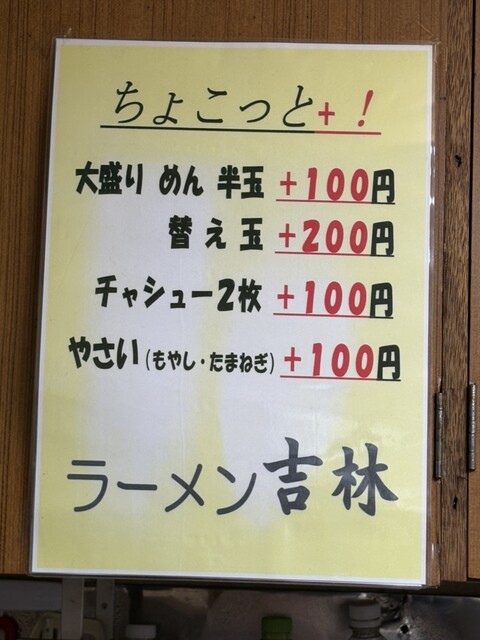 ちょこっと+！
大盛り めん 半玉 +100円
替え玉 +200円
チャシュー2枚 +100円
やさい(もやし・たまねぎ) +100円
ラーメン吉林